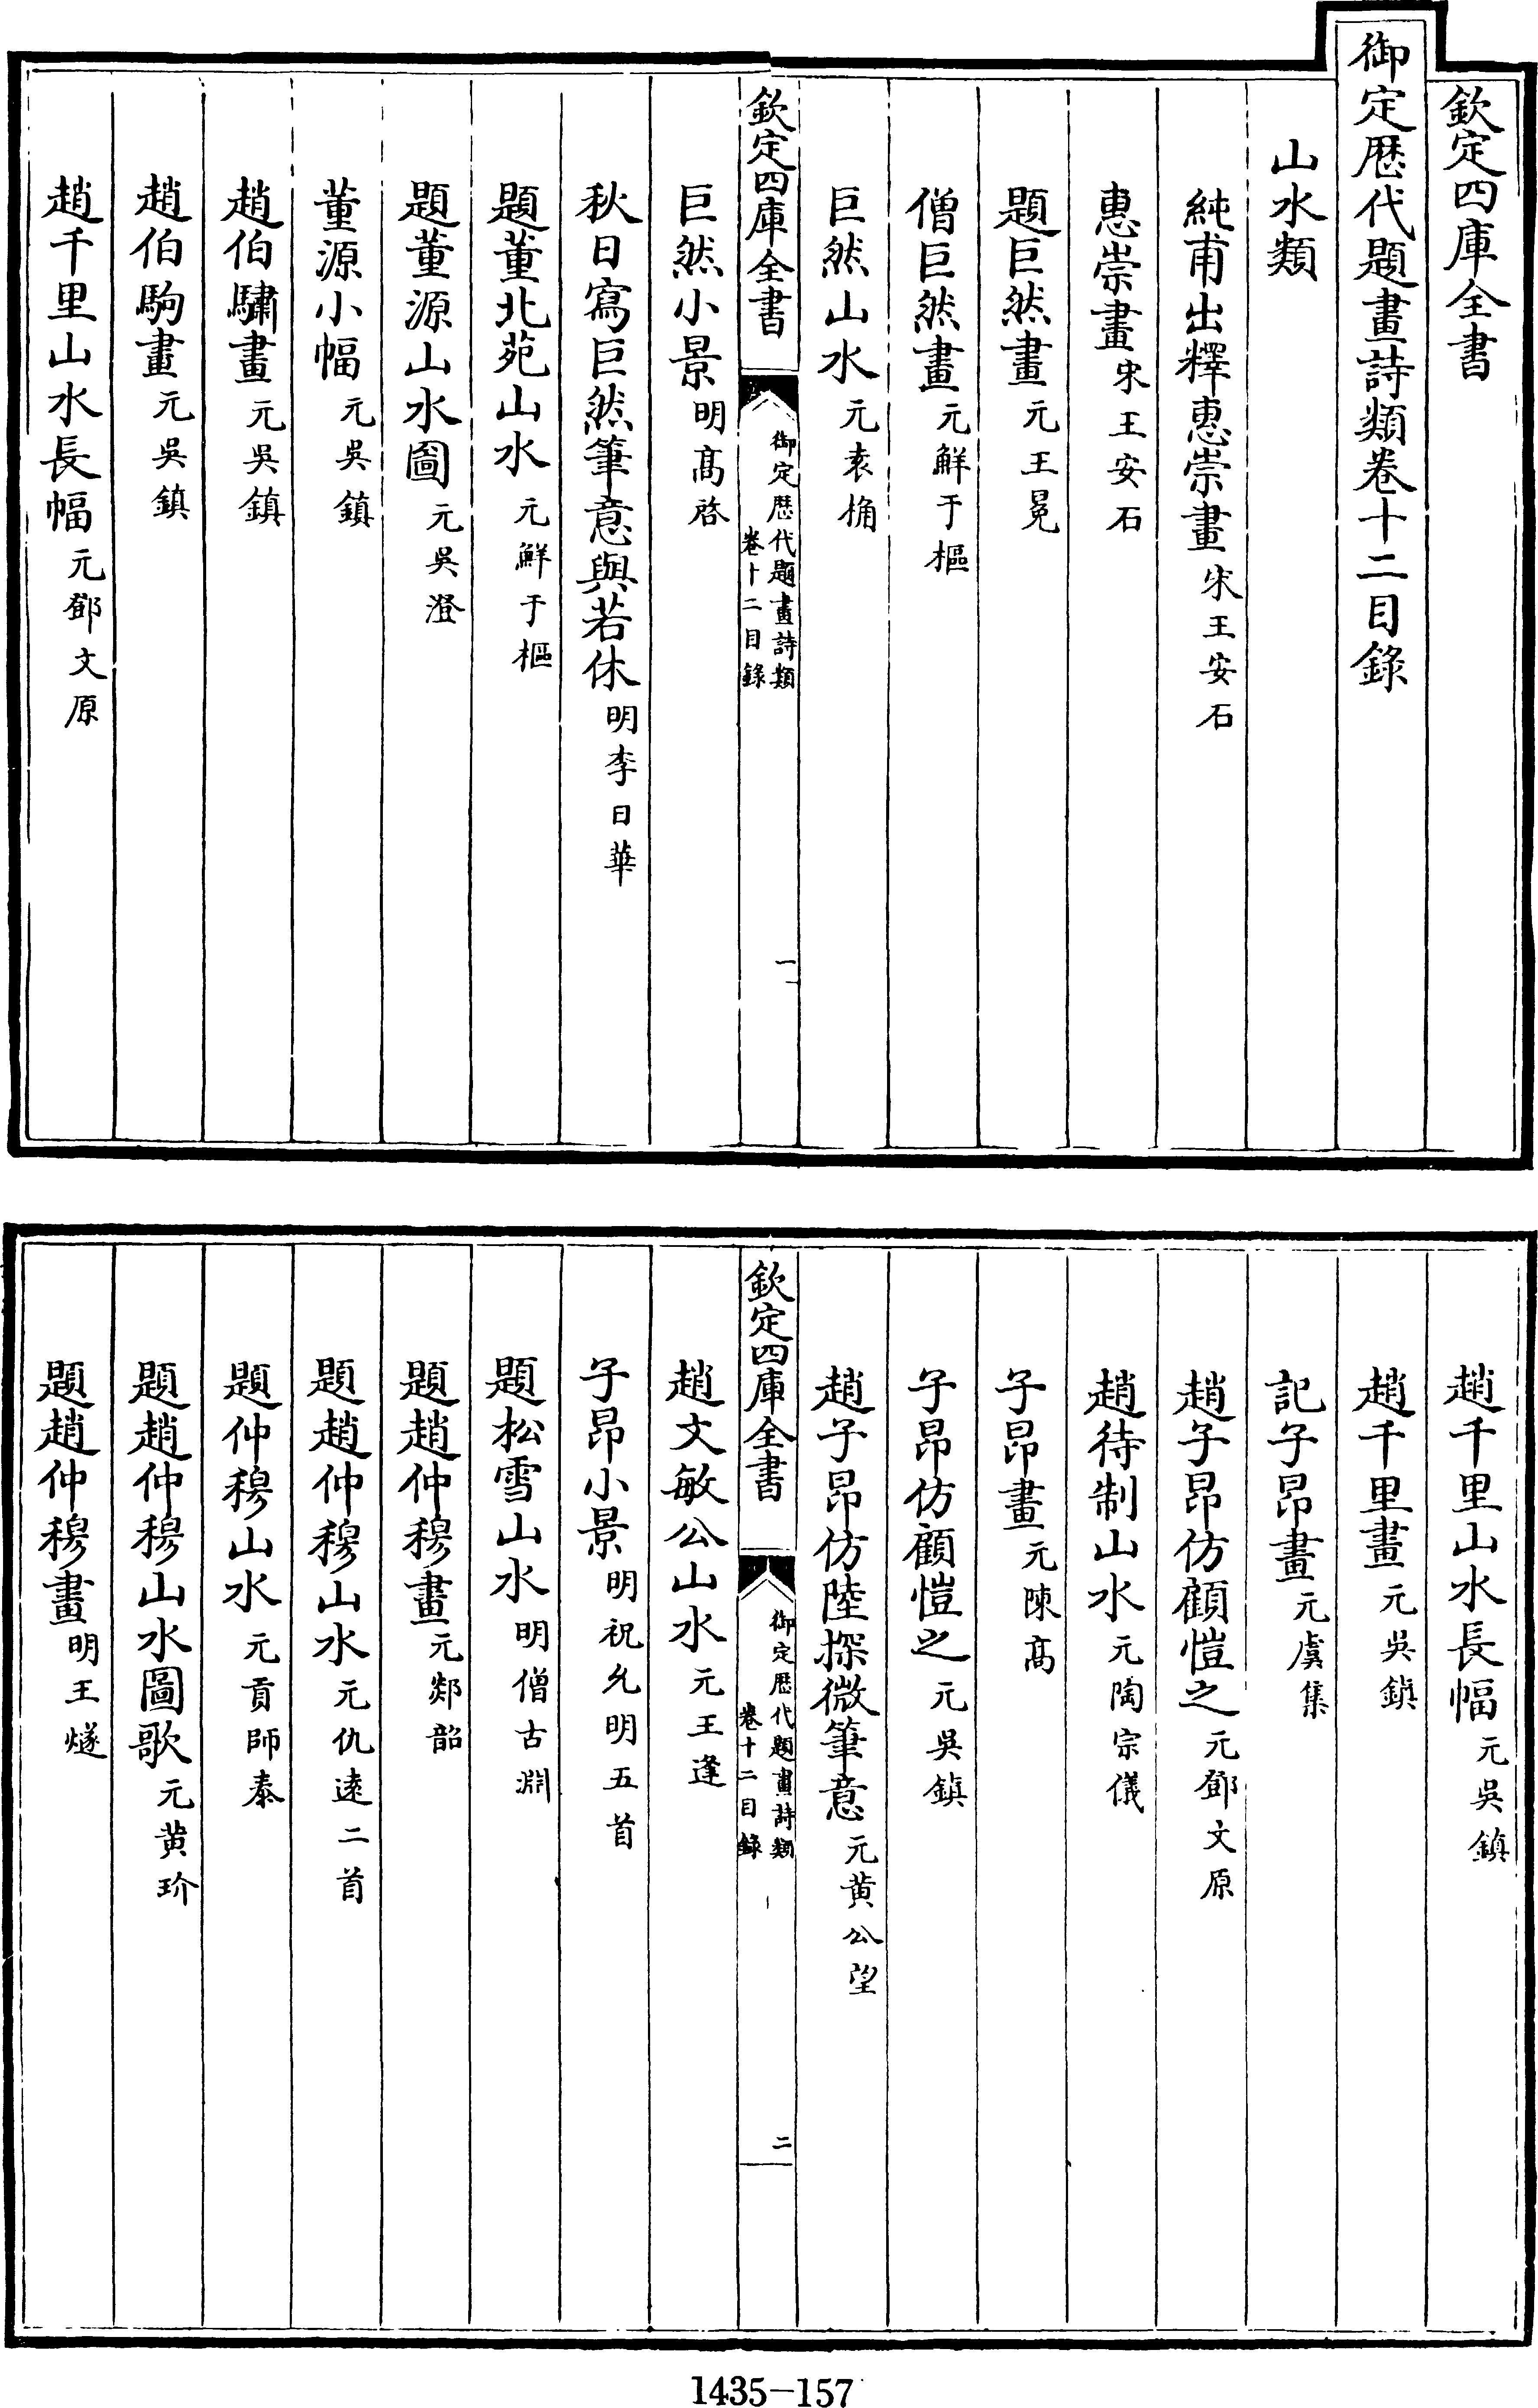 欽定四庫全書
御定歷代題畫詩類卷十二目錄
山水類
純甫出釋惠崇畫宋王安石
惠崇畫宋王安石
題巨然畫元王冕
僧巨然畫元鮮于樞
巨然山水元袁桷
欽定四庫全書
御定歷代題畫詩類
卷十二目錄
一
巨然小景明高啓
秋日寫巨然筆意與若休明李日華
題董北苑山水元鮮于樞
題董源山水圖元吳澄
董源小幅元吳鎮
趙伯驌畫元吳鎮
趙伯駒畫元吳鎮
趙千里山水長幅元鄧文原
趙千里山水長幅元吳鎮
趙千里畫元吳鎮
記子昂畫元虞集
趙子昂仿顧愷之元鄧文原
趙待制山水元陶宗儀
子昂畫元陳高
子昂仿顧愷之元吳鎮
趙子昂仿陸探微筆意元黃公望
欽定四庫全書
御定歷代題畫詩類
卷十二目錄
二
趙文敏公山水元王逢
子昂小景明祝允明五首
題松雪山水明僧古淵
題趙仲穆畫元郯韶
題趙仲穆山水元仇遠二首
題仲穆山水元貢師泰
題趙仲穆山水圖歌元黃玠
題趙仲穆畫明王燧
1435-157